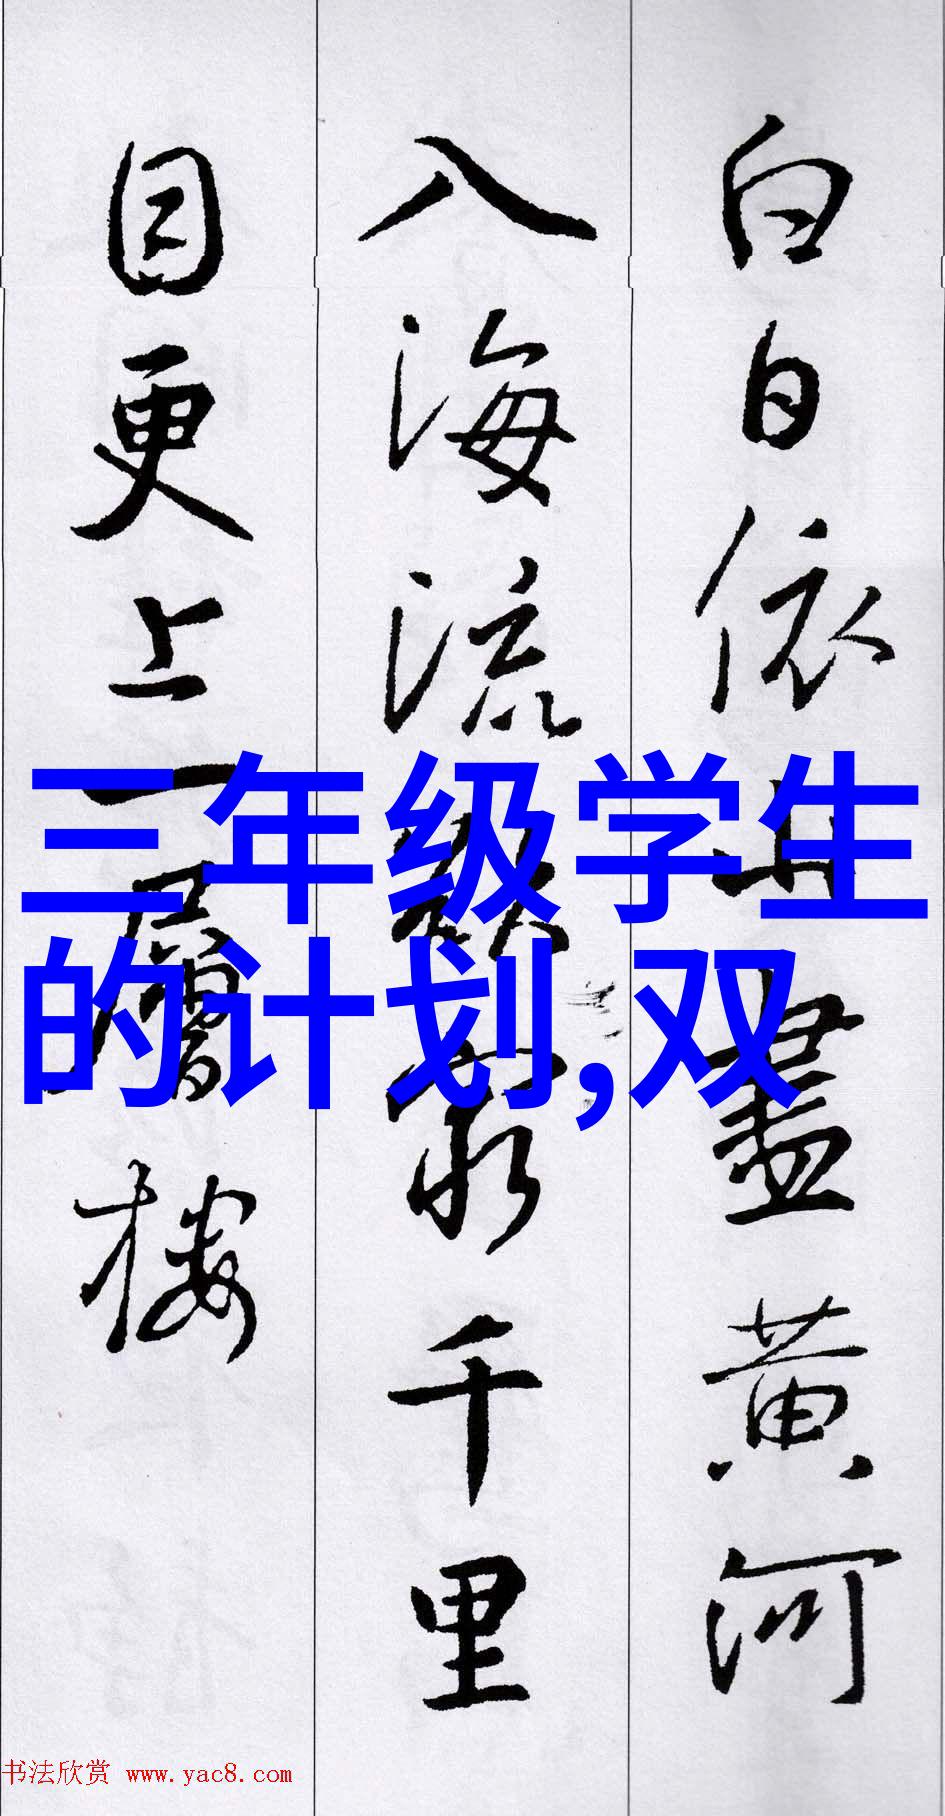 白日依山盡黄河
入海流欲窮千里
目更上一層樓
三年级学生
的计划,双
书法欣赏 www.yac8.com